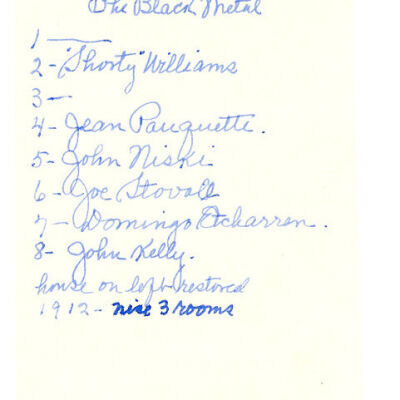 The Black Metal
1 ———
2- "Shorty" Williams
3 —
4- Jean Pauquette.
5- John Niski
6- Joe Stovall
7- Domingo Etcharren.
8- John Kelly.
house on left restored
1912- nice 3 rooms